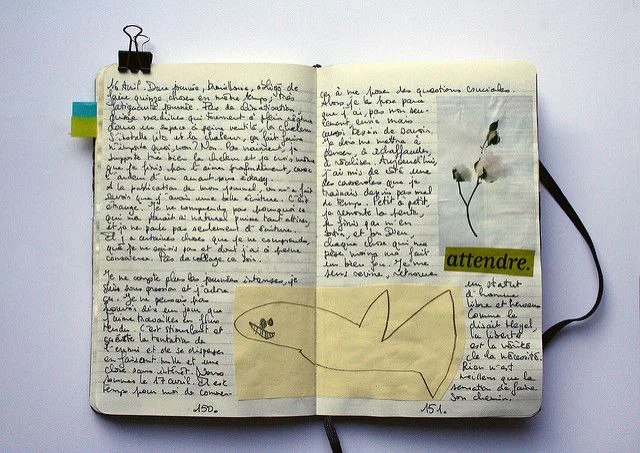 16 Avril. Dure journée, brouillonne, obligée de
faire quinze choses en même temps, très
fatiguante journée. Pas de climatisation,
quinze machines qui tournent à plein régime
dans un espace à peine ventilé, la chaleur
s'installe vite et la chaleur, ça fait faire
n'importe quoi, non? Non, pas vraiment, je
supporte très bien la chaleur et je crois même
que je finis par l'aimer profondément, avec
l'autan d'un vent pour
A la publication de mon journal, on m'a fait
savoir que j'avais une belle écriture. C'est
étrange. Je ne comprends pas pourquoi ce
qui me paraît si naturel puisse tant attirer,
et je ne parle pas seulement d'écriture.
Il y a certaines choses que je ne comprends
que je ne saisis pas et dont j'ai à peine
conscience. Pas de collage ce soir.
Je ne compte plus les journées intenses, je
suis sous pression et j'adore
ça. Je ne pensais pas
pouvoir dire un jour que
j'aime travailler en flux
tendu. C'est stimulant et
ça évite la tentation de
l'ennui et de se disperser
en faisant mille et une
chose sans intérêt. Nous
sommes le 17 avril. Il est
temps pour moi de commen-
150.
çer à me poser des questions cruciales.
Alors, je les pose parce
que j'ai, pas non seu-
lement, envie mais
aussi besoin de savoir.
Je dois me mettre à
penser, à échaffauder,
à réaliser. Aujourd'hui,
j'ai mis de côté une
des casseroles que je
traînais depuis pas mal
de temps. Petit à petit,
je remonte la pente,
je finis par m'en
sortir, et bon Dieu,
chaque chose qui me
pèse moins me fait
un bien fou. Je me
sens revivre, retrouver
attendre.
un statut
d'homme
libre et heureux
Comme le
disait Hegel,
la liberté
est la vérité
de la nécessité.
Rien n'est
meilleur que la
sensation de faire
son chemin.
151.